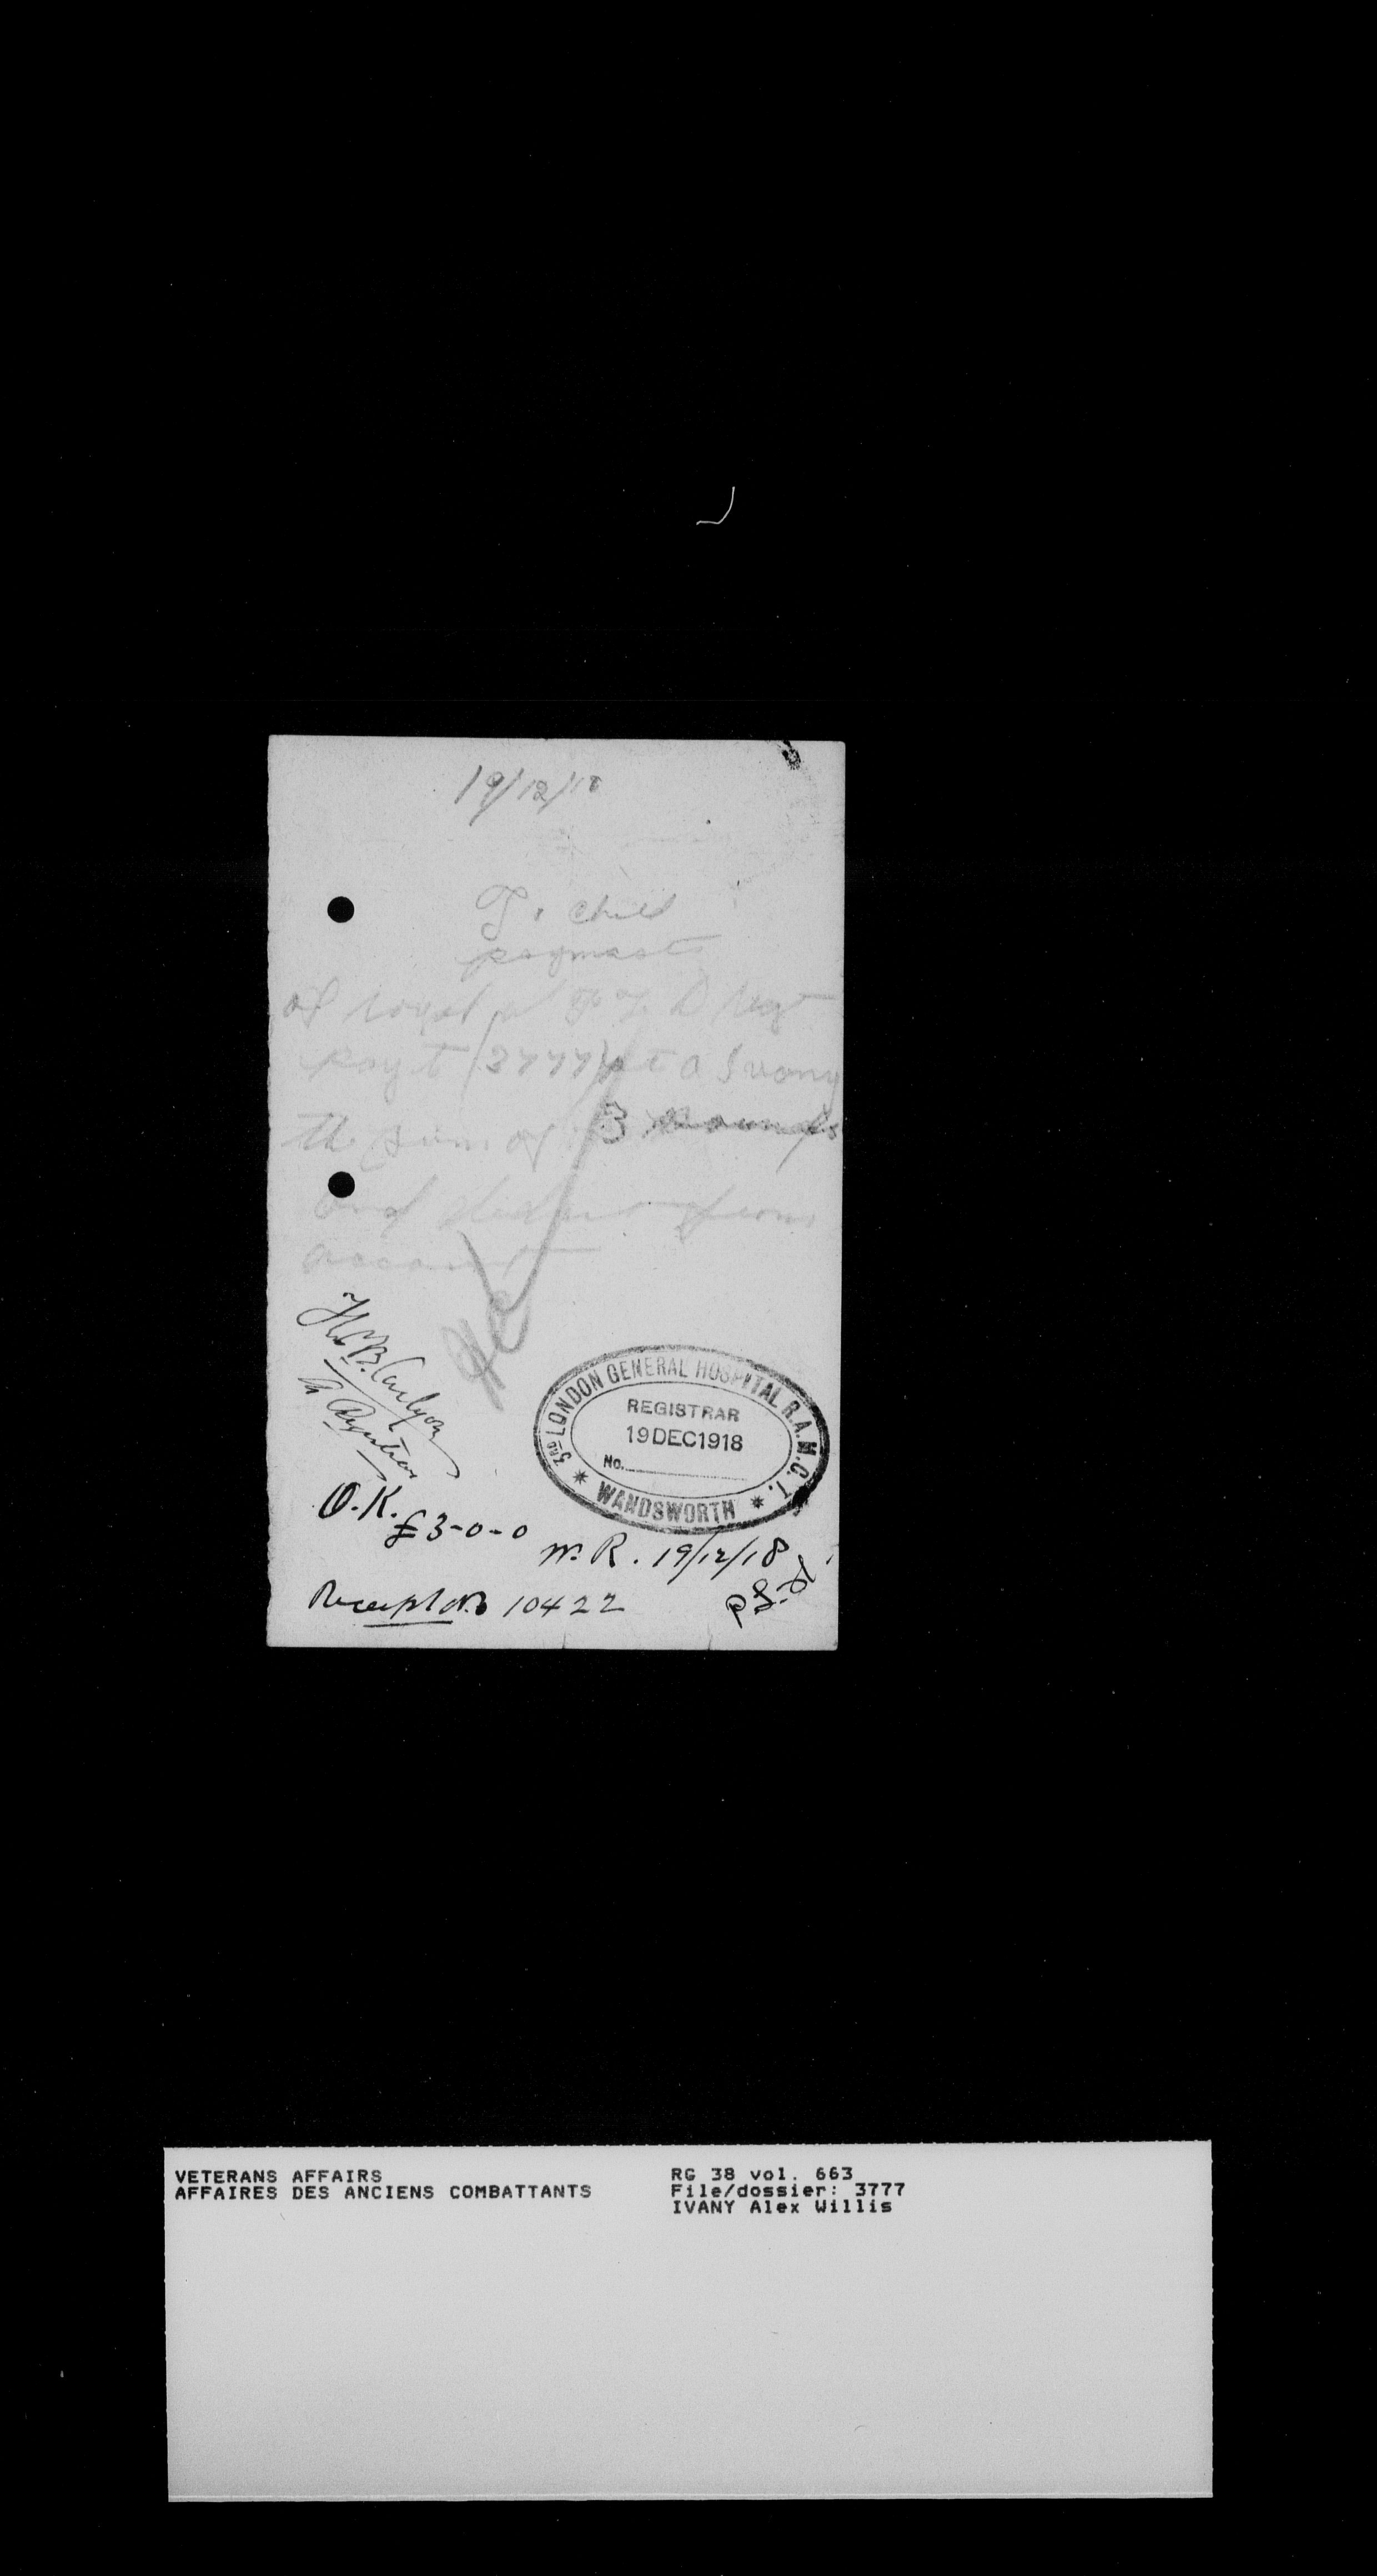 19/12/18
To chief
paymaster
of royal
pay to (3777) pt a Ivany
the sum of 3 Pounds
and from
account
O.K. £3-0-0
3RD LONDON GENERAL HOSPITAL R.A.M.C.T.
REGISTRAR
19 DEC 1918
No.
* WANDSWORTH *
W.R. 19/12/18
Receipt No 10422
VETERANS AFFAIRS
AFFAIRES DES ANCIENS COMBATTANTS
RG 38 vol. 663
File/dossier: 3777
IVANY Alex Willis